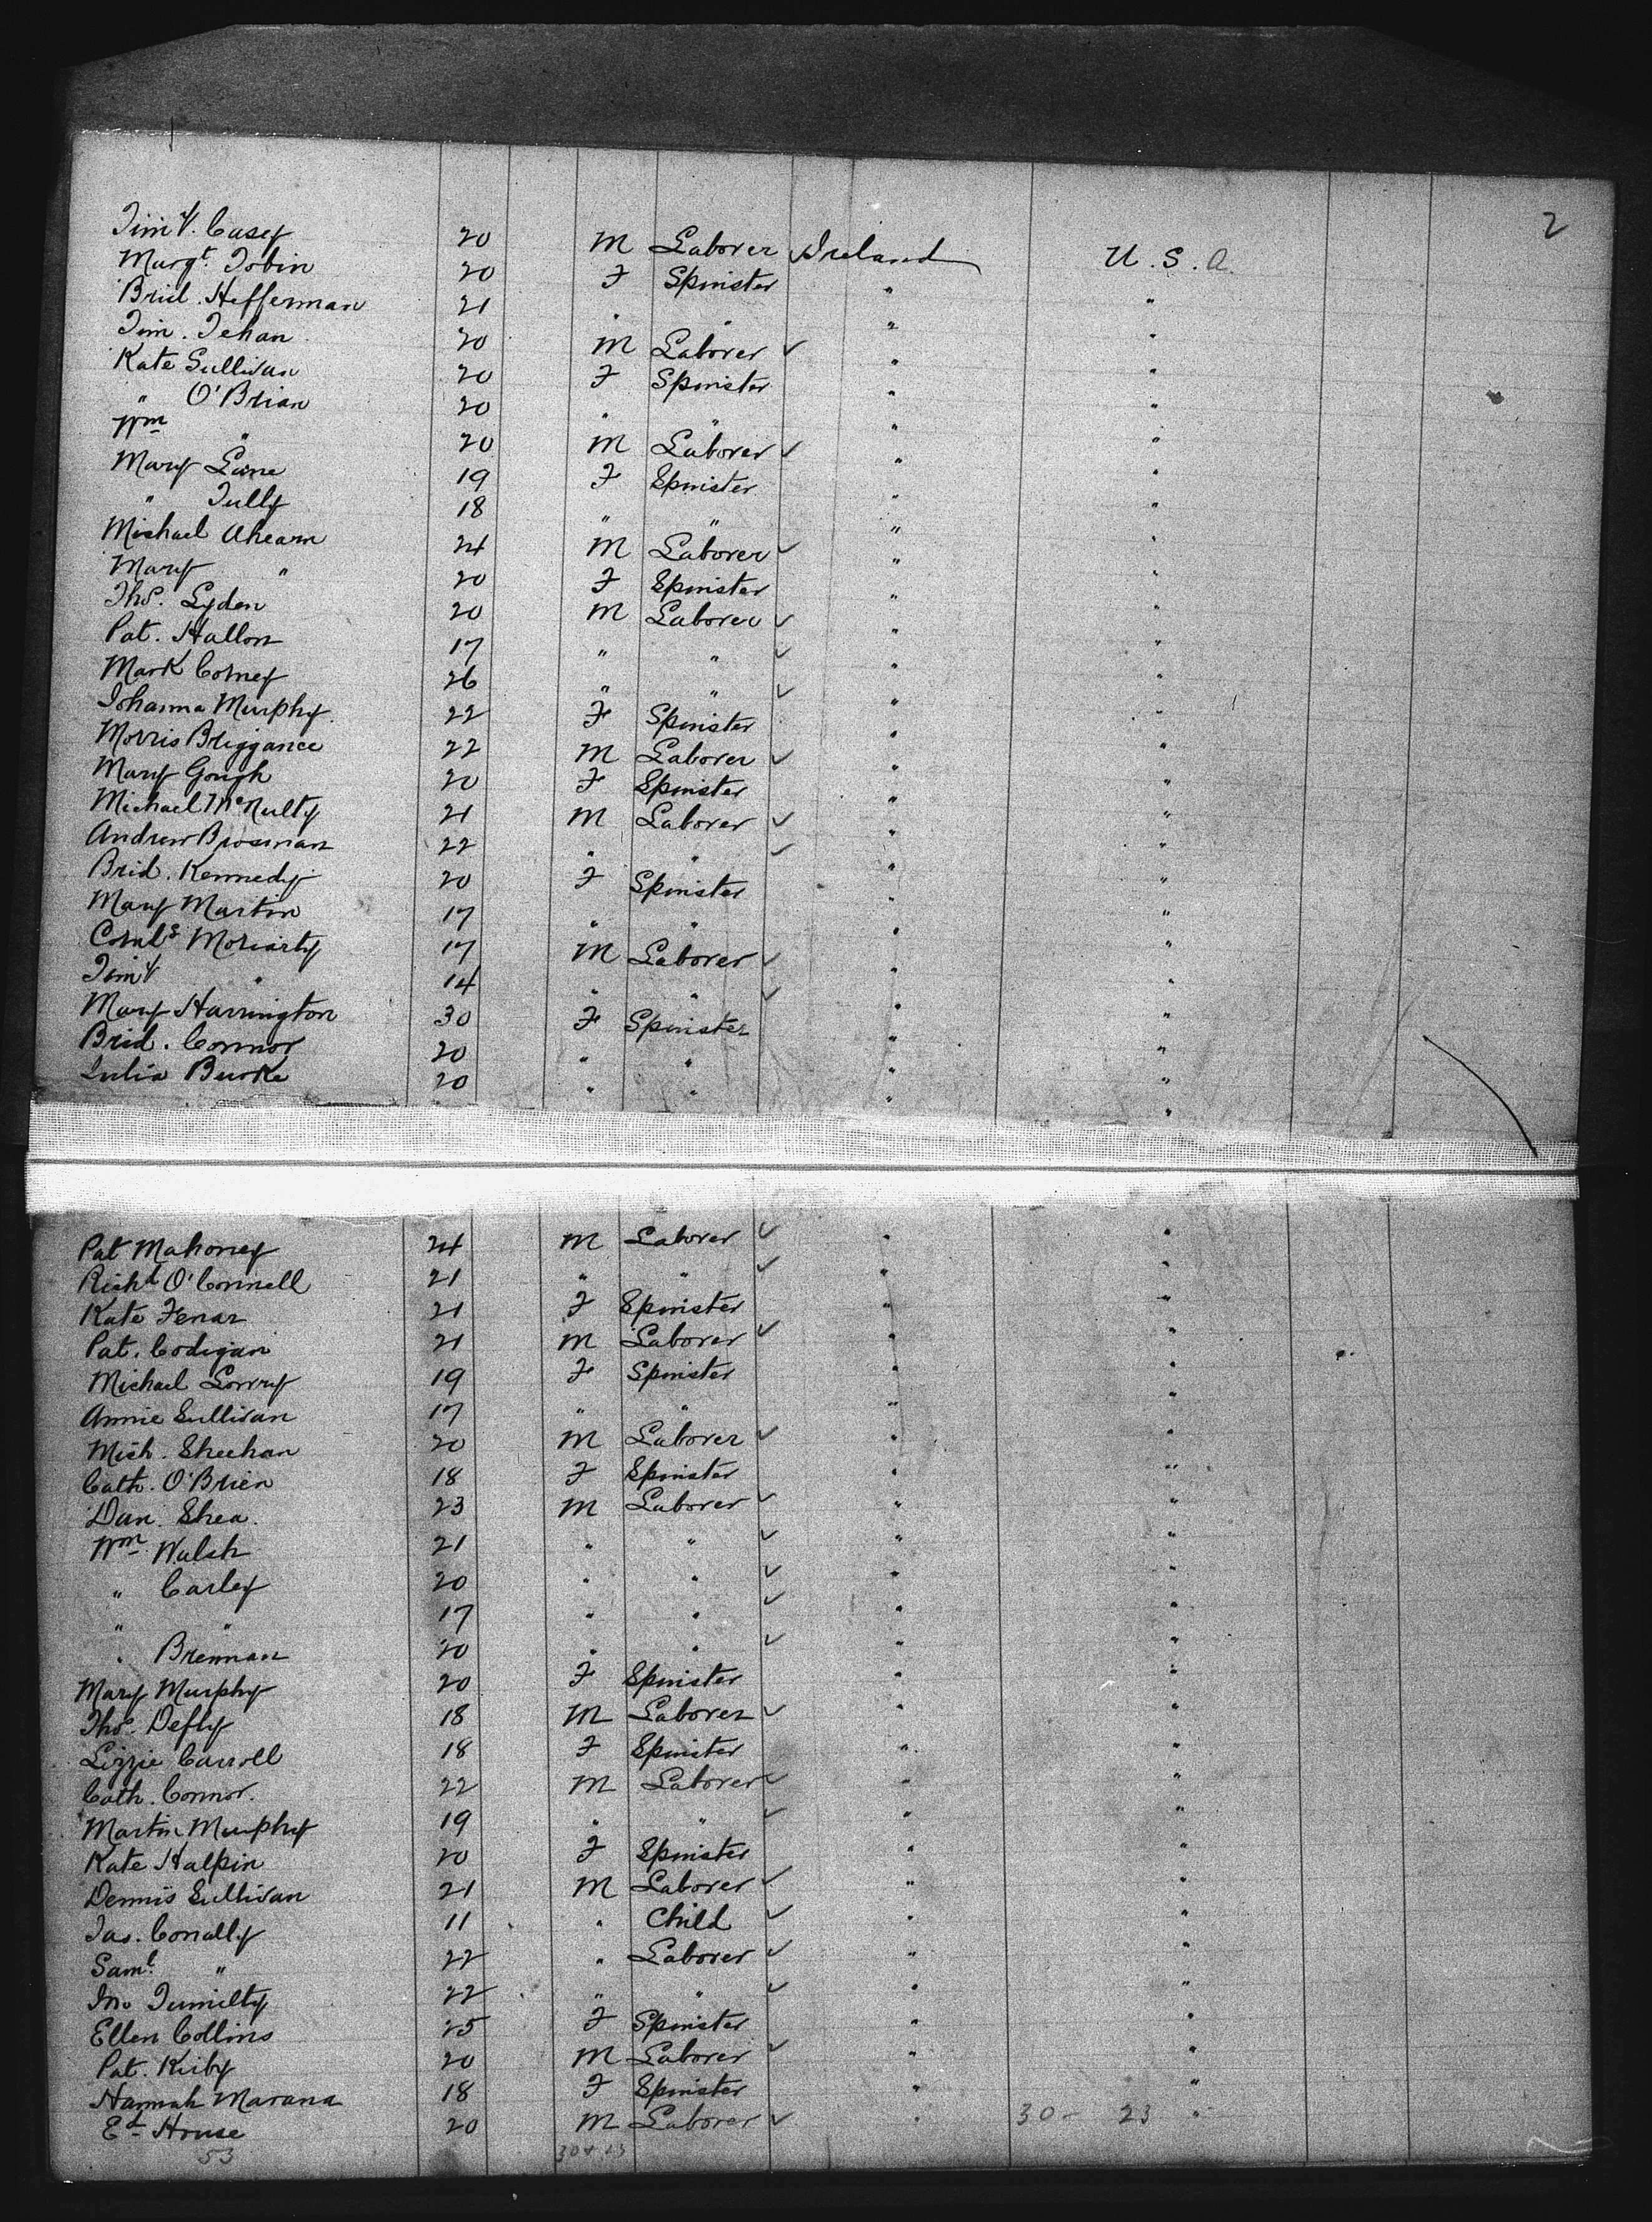 2
Timy. Casey 20 M Laborer Ireland U.S.A.
Margt. Tobin 20 F Spinster " "
Brid. Hefferman 21 " " " "
Tim. Tehan 20 M Laborer ✓ " "
Kate Sullivan 20 F Spinster " "
" O'Brian 20 " " " "
Wm " 20 M Laborer ✓ " "
Mary Lane 19 F Spinster " "
" Tully 18 " " " "
Michael Ahearn 24 M Laborer ✓ " "
Mary " 20 F Spinster " "
Thos. Lyden 20 M Laborer ✓ " "
Pat. Hallon 17 " " ✓ " "
Mark Corney 26 " " ✓ " "
Johanna Murphy 22 F Spinster " "
Morris Briggance 22 M Laborer ✓ " "
Mary Gough 20 F Spinster " "
Michael McNulty 21 M Laborer ✓ " "
Andrew Brosman 22 " " ✓ " "
Brid. Kennedy 20 F Spinster " "
Mary Martin 17 " " " "
Cornls Moriarty 17 M Laborer ✓ " "
Timy " 14 " " ✓ " "
Mary Harrington 30 F Spinster " "
Brid. Connor 20 " " " "
Julia Burke 20 " " " "
Pat Mahoney 24 M Laborer ✓ " "
Richd O'Connell 21 " " ✓ " "
Kate Fenar 21 F Spinster " "
Pat. Codigan 21 M Laborer ✓ " "
Michael Lorry 19 F Spinster " "
Annie Sullivan 17 " " " "
Mich. Sheehan 20 M Laborer ✓ " "
Cath. O'Brien 18 F Spinster " "
Dan. Shea. 23 M Laborer ✓ " "
Wm. Walsh 21 " " ✓ " "
" Carley 20 " " ✓ " "
" " 17 " " ✓ " "
" Brennan 20 " " ✓ " "
Mary Murphy 20 F Spinster " "
Thos. Defly 18 M Laborer ✓ " "
Lizzie Carroll 18 F Spinster " "
Cath. Connor. 22 M Laborer ✓ " "
Martin Murphy 19 " " ✓ " "
Kate Halpin 20 F Spinster " "
Dennis Sullivan 21 M Laborer ✓ " "
Jas. Conally 11 " Child ✓ " "
Saml. " 22 " Laborer ✓ " "
Jno Tumilty 22 " " ✓ " "
Ellen Collins 25 F Spinster " "
Pat. Kirby 20 M Laborer ✓ " "
Hannah Marana 18 F Spinster " "
Ed House 20 M Laborer ✓ " 30 - 23 "
53 30 + 23